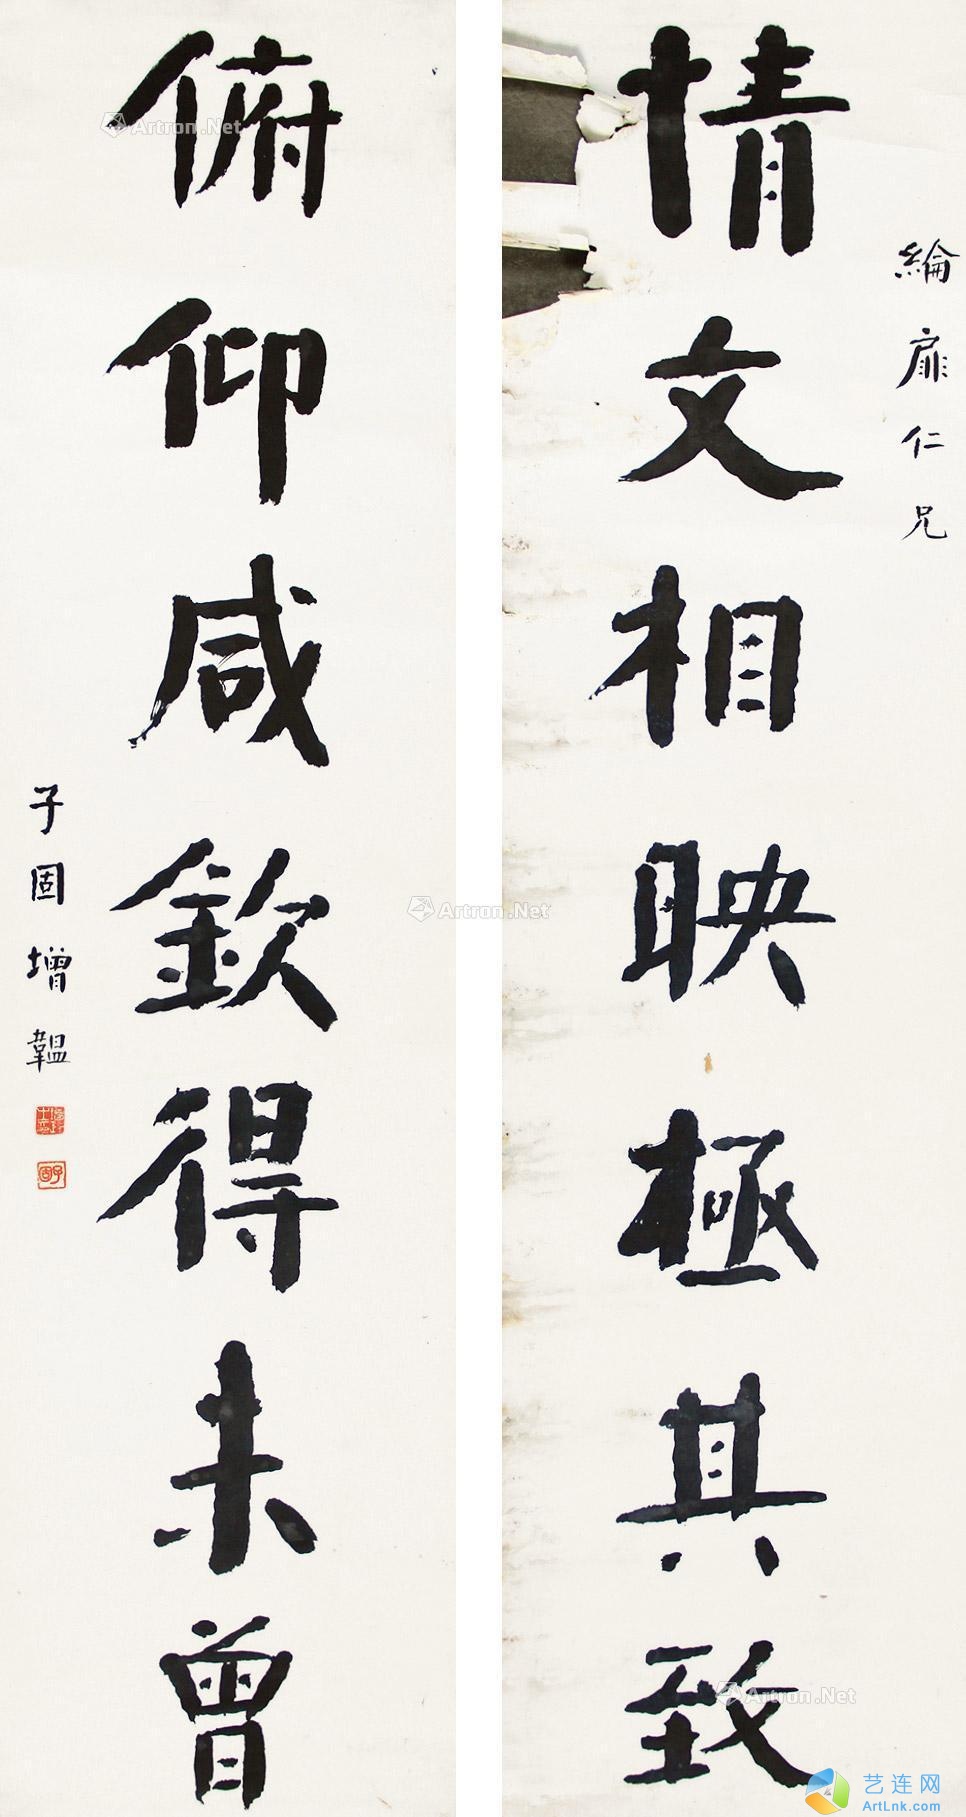 綸扉仁兄
情文相映極其致
俯仰咸欽得未曾
子固增韞
子固
Artron.Net
Artron.Net
Artron.Net
艺连网
ArtLnk.com